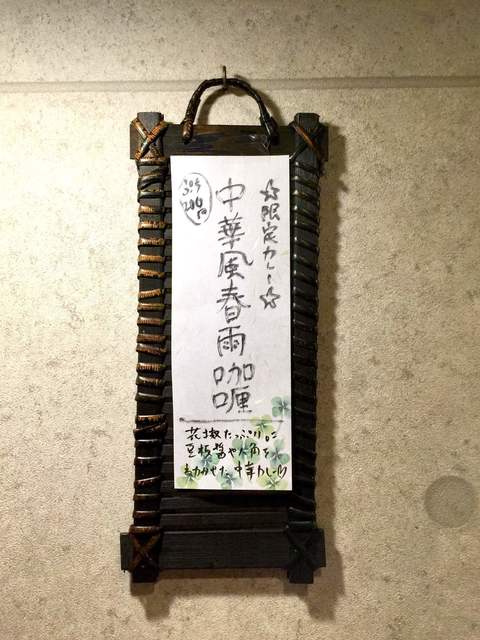 ☆限定カレー☆
中華風春雨咖喱
200円
花椒たっぷりに
豆板醤や八角を
きかせた、中華カレー♪